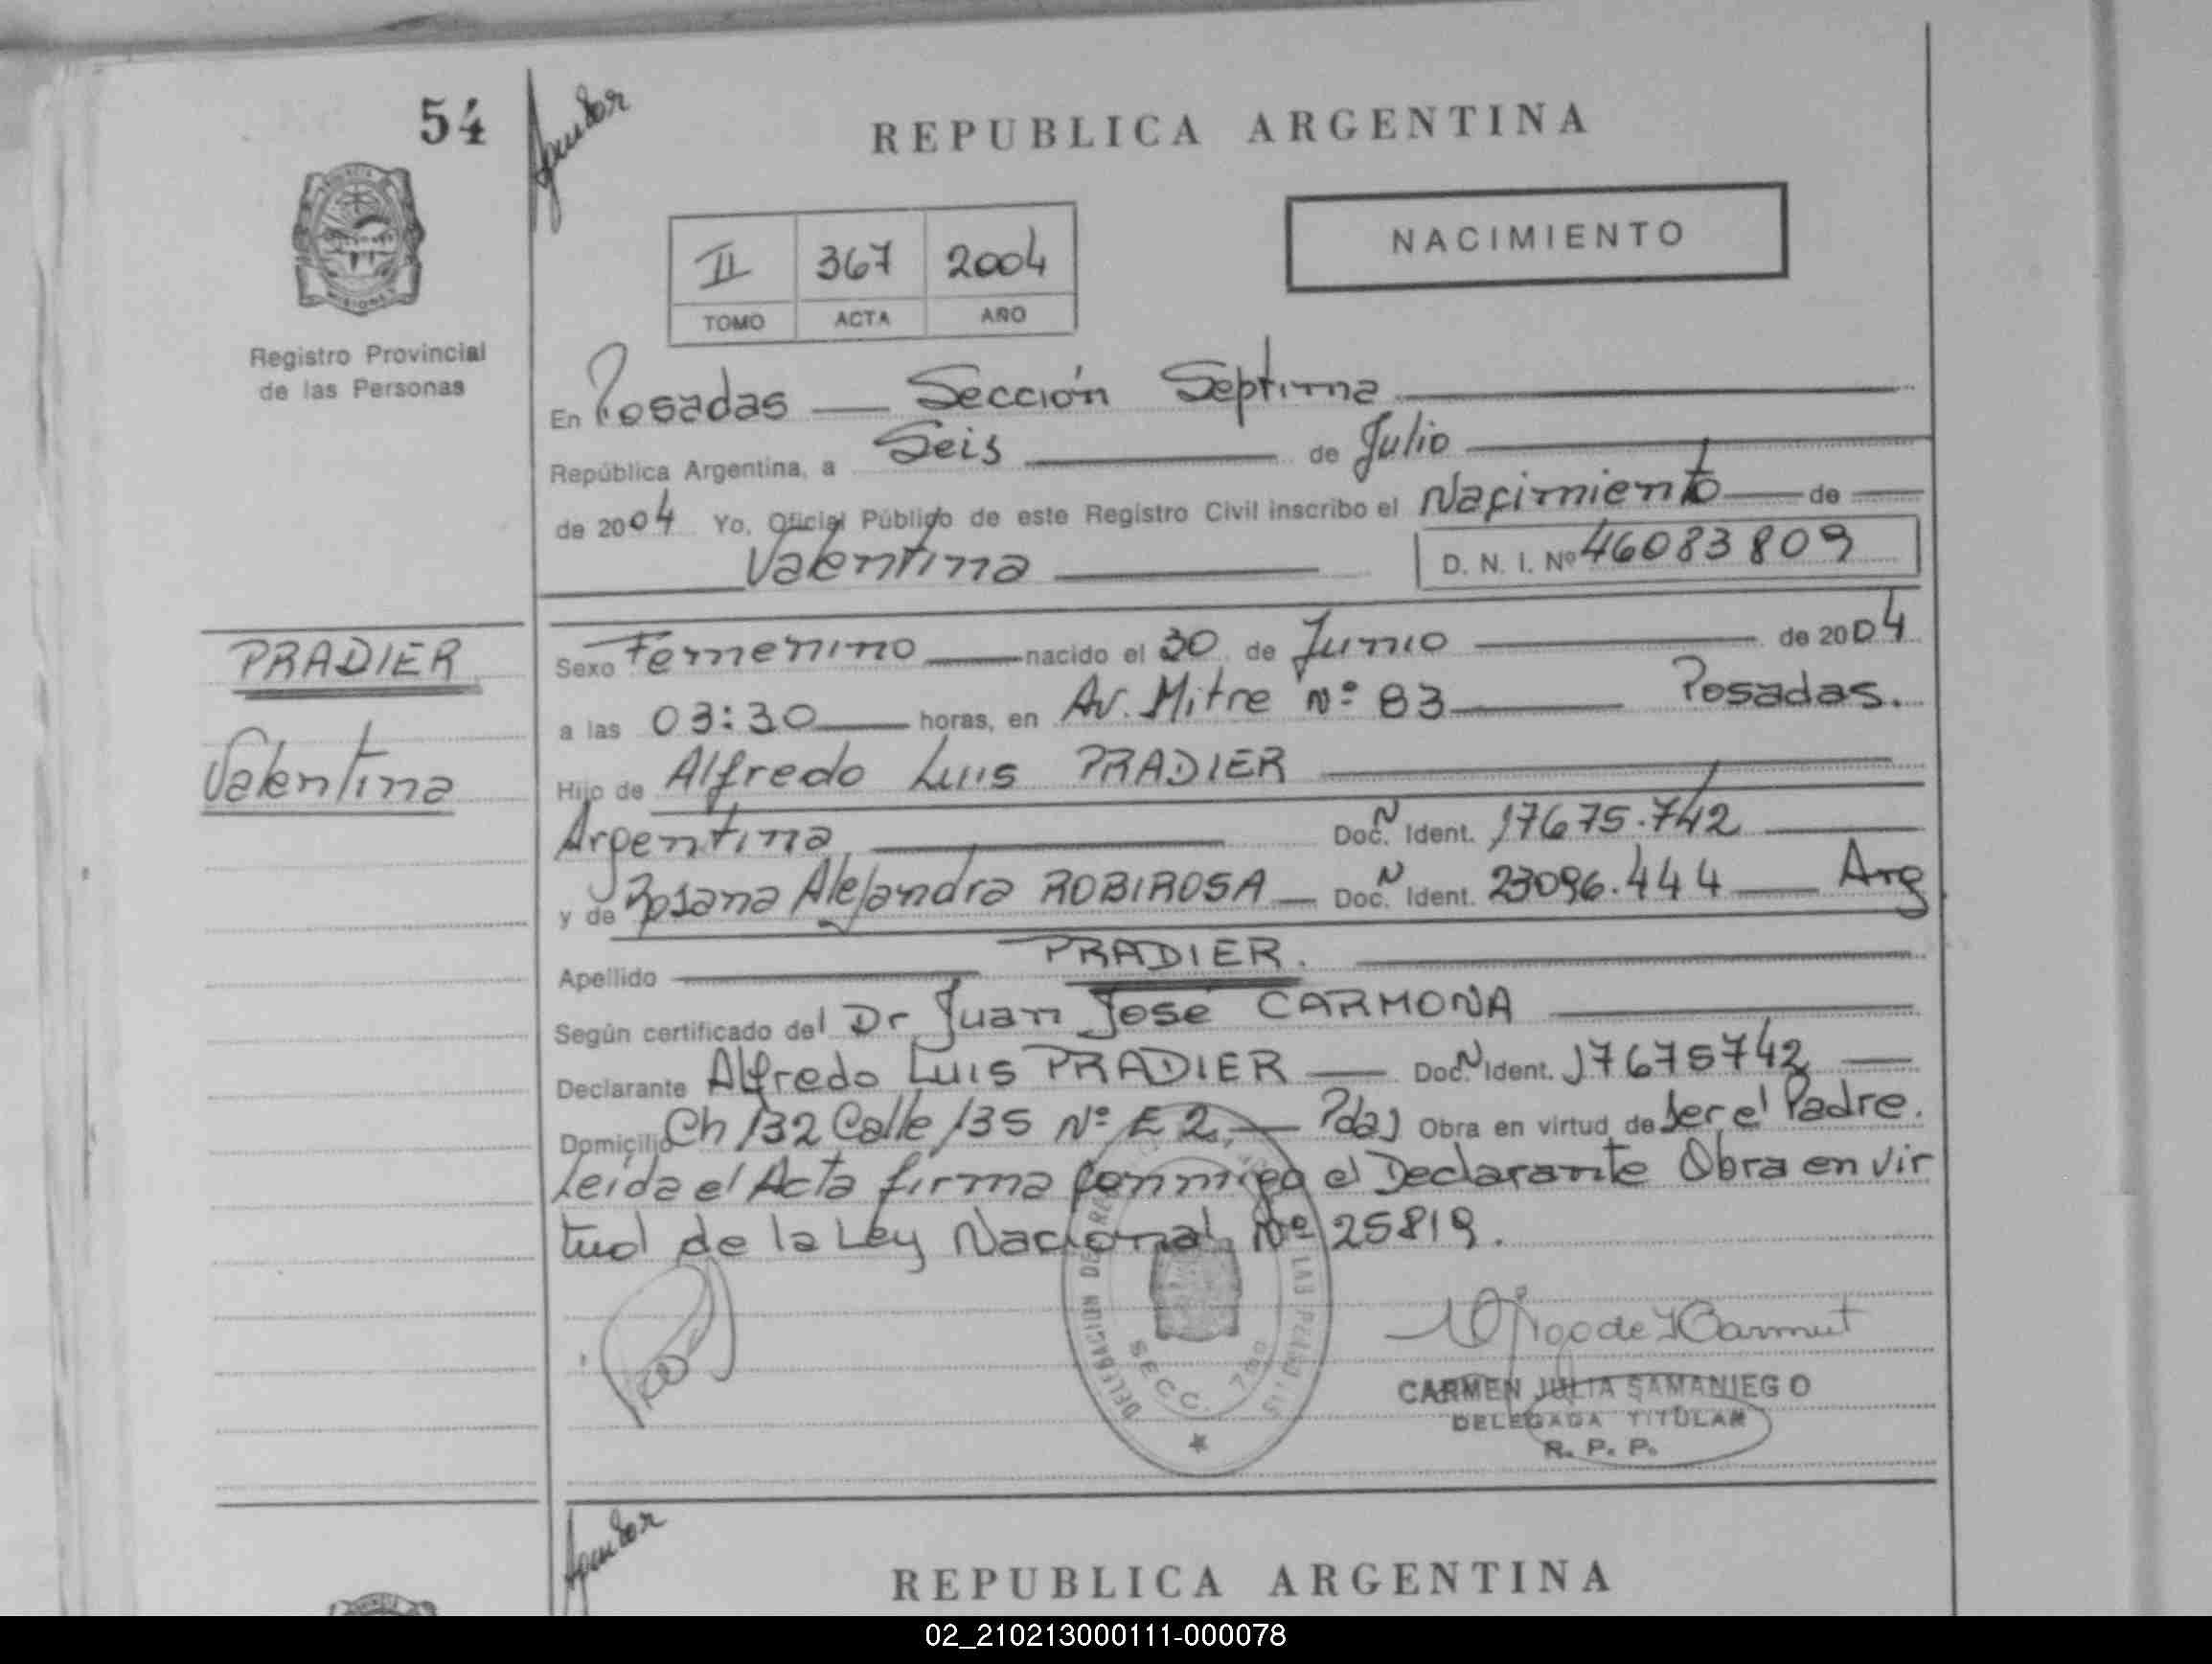 54
REPUBLICA ARGENTINA
NACIMIENTO
II 367 2004
TOMO ACTA AÑO
Registro Provincial
de las Personas
En Posadas — Sección Septima
República Argentina, a Seis de Julio
de 2004 Yo, Oficial Público de este Registro Civil inscribo el Nacimiento de
Valentina D. N. I. Nº 46083809
PRADIER
Valentina
Sexo Femenino nacido el 30 de Junio de 2004
a las 03:30 horas, en Av. Mitre Nº 83 Posadas.
Hijo de Alfredo Luis PRADIER
Argentina Doc. N Ident. 17675.742
y de Rosana Alejandra ROBIROSA Doc. N Ident. 23096.444 Arg
Apellido PRADIER.
Según certificado del Dr Juan José CARMONA
Declarante Alfredo Luis PRADIER Doc. N Ident. 17675742
Domicilio Ch 132 Calle 135 Nº E 2. Pdas Obra en virtud de Ser el Padre.
Leida el Acta firma conmigo el Declarante Obra en vir
tud de la Ley Nacional Nº 25819.
SECC. 7ma
CARMEN JULIA SAMANIEGO
DELEGADA TITULAR
R. P. P.
REPUBLICA ARGENTINA
02_210213000111-000078